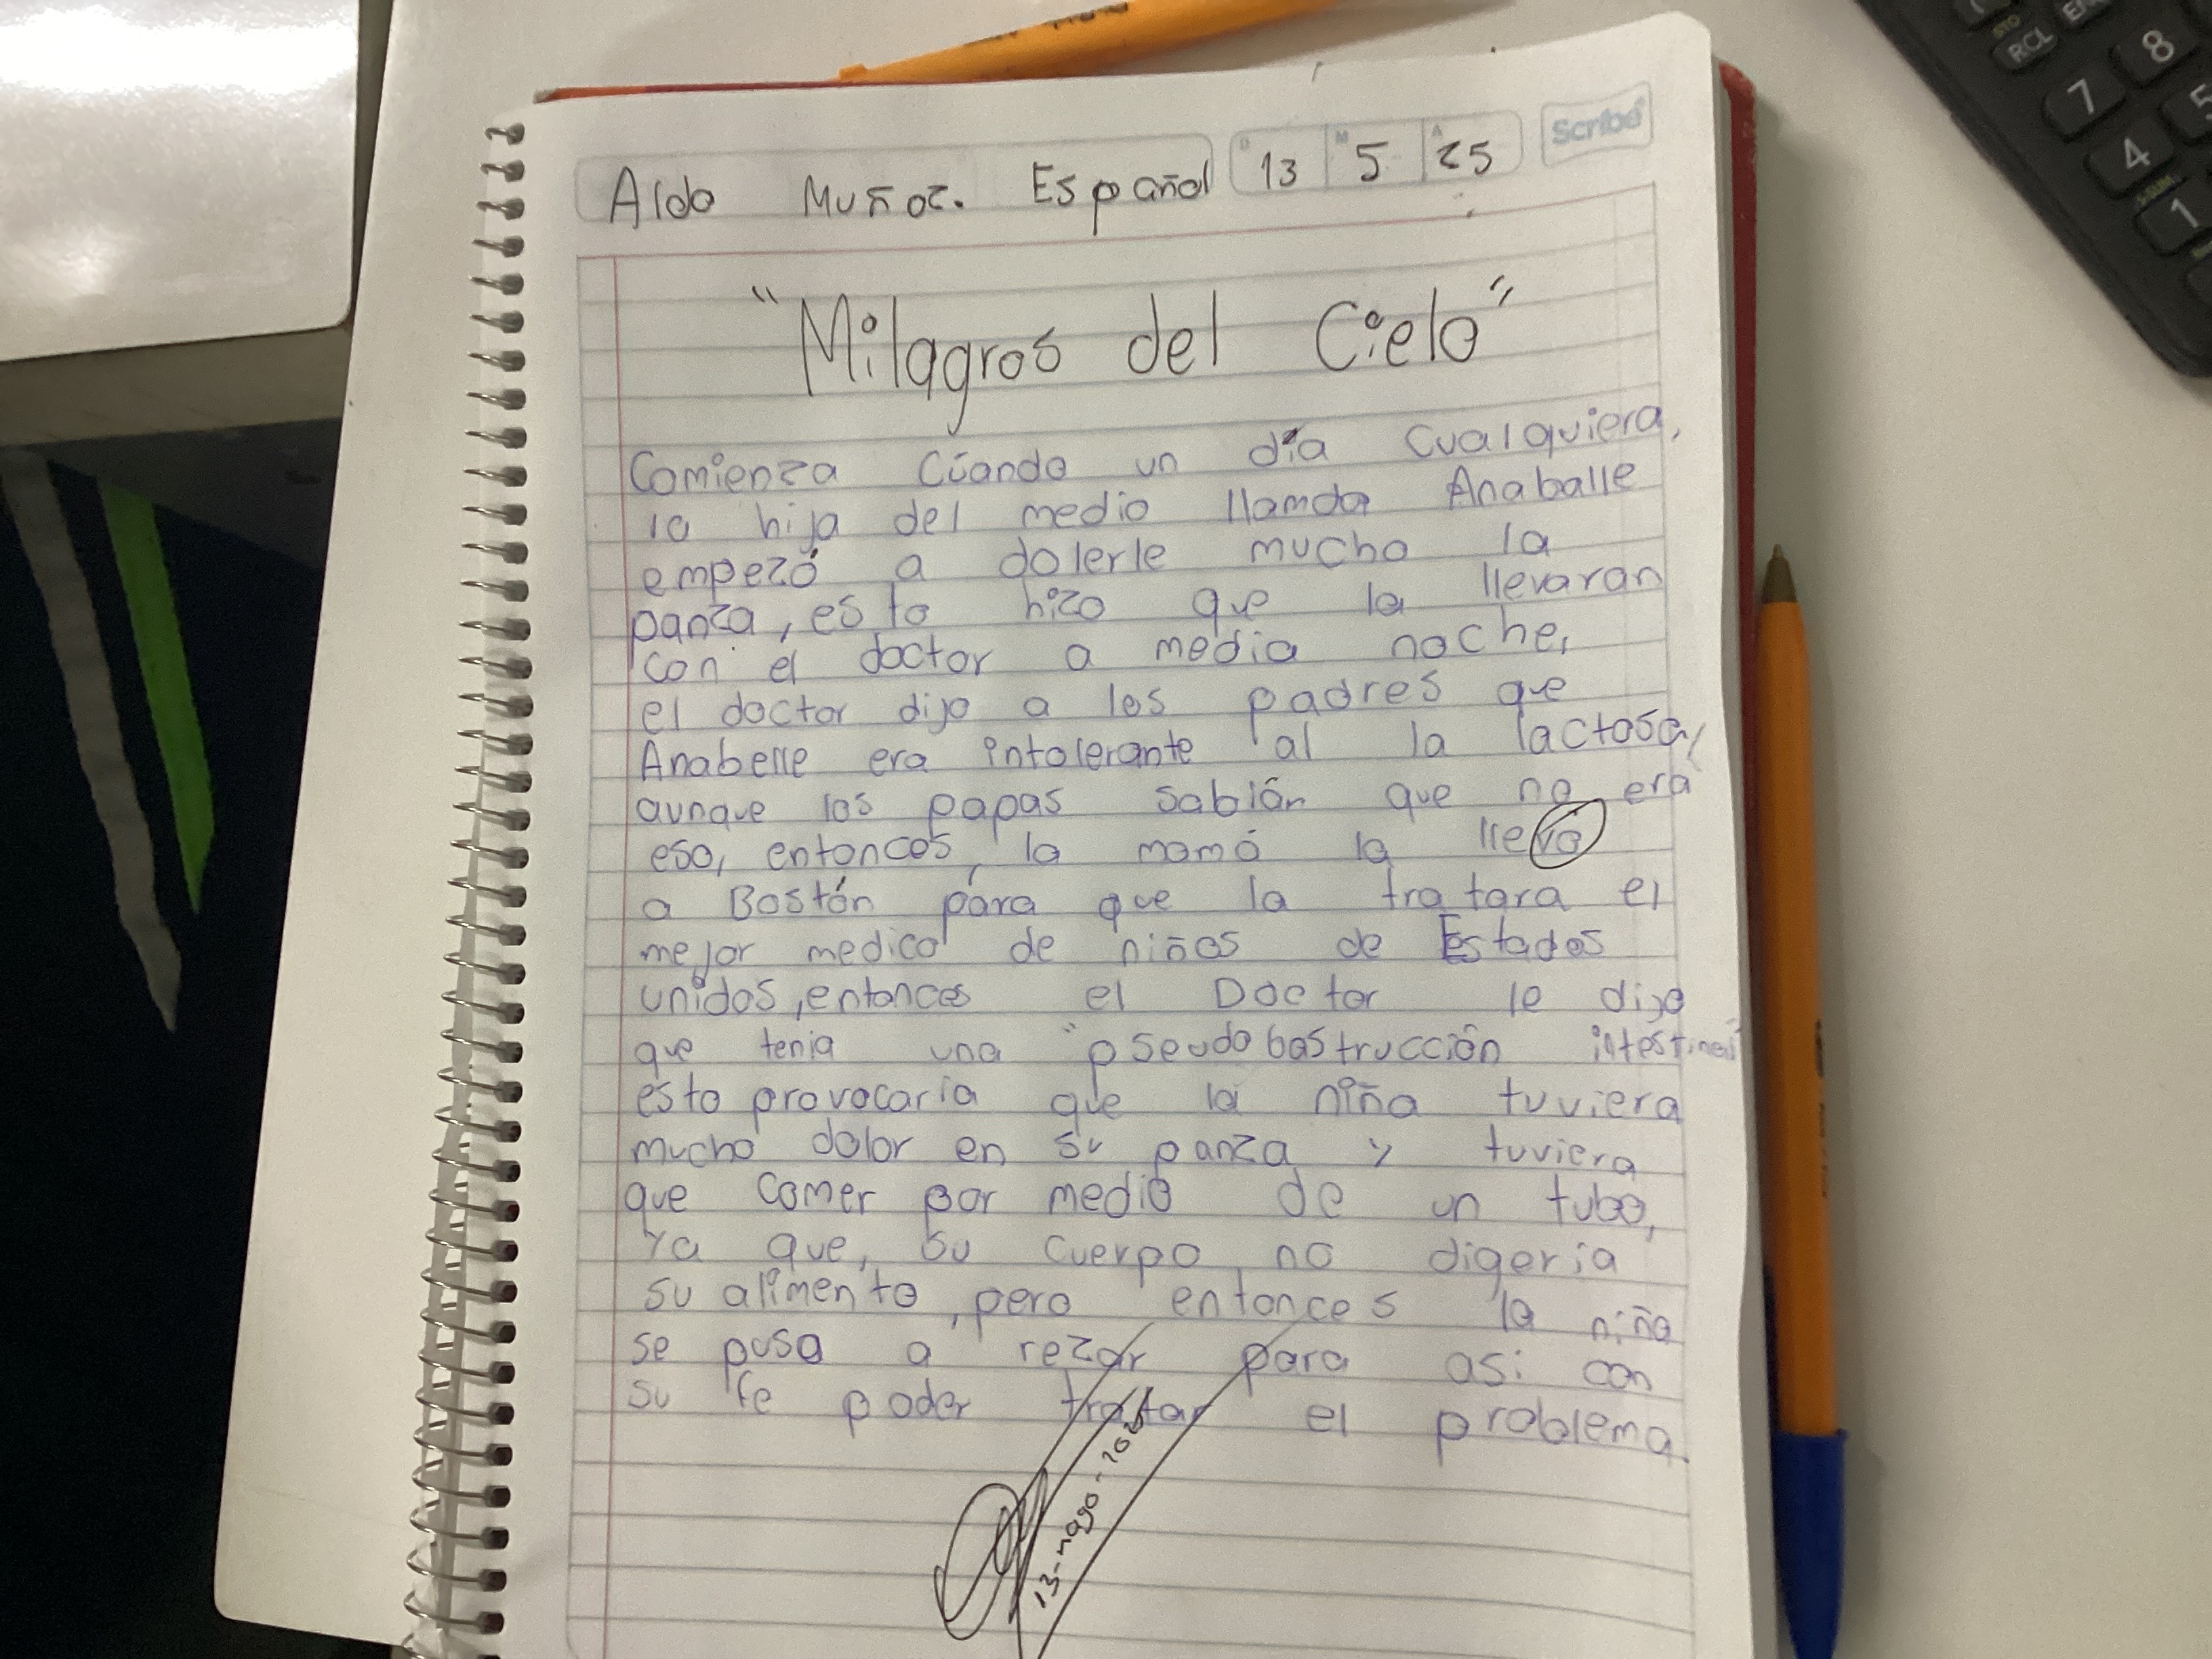 Aldo Muñoz. Español D 13 M 5 A 25 Scribe
"Milagros del Cielo"
Comienza Cúando un día cualquiera,
la hija del medio llamda Anaballe
empezó a dolerle mucho la
panza, esto hizo que la llevaran
con el doctor a media noche,
el doctor dijo a los padres que
Anabelle era intolerante al la lactosa,
aunque los papas sabián que no era
eso, entonces, la mamá la llevo
a Bostón para que la tratara el
mejor medico de niños de Estados
unidos, entonces el Doctor le dijo
que tenia una "pseudobastrucción intestinal
esto provocaria que la niña tuviera
mucho dolor en su panza y tuviera
que comer por medio de un tubo,
ya que, su cuerpo no digeria
su alimento, pero entonces la niña
se puso a rezar para asi con
su fe poder tratar el problema.
RCL
8
7
4
1